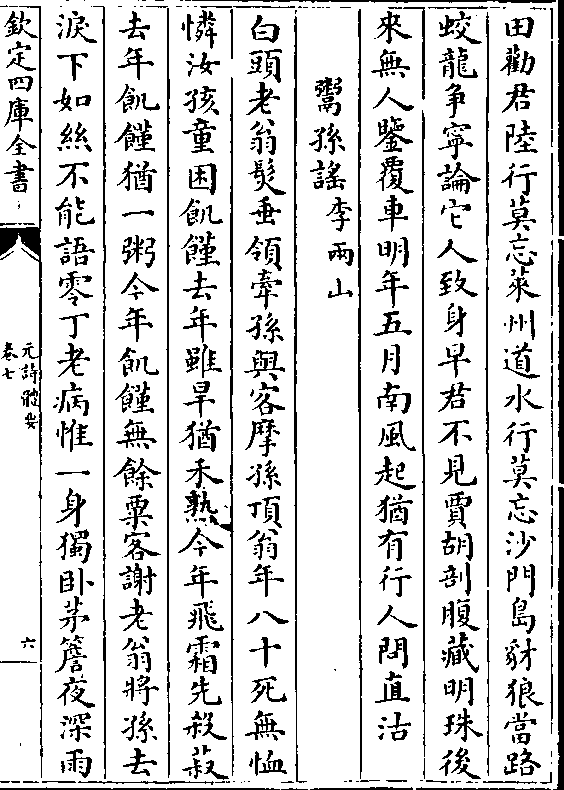 田勸君陸行莫忘萊州道水行莫忘沙門島豺狼當路
蛟龍争寧論它人致身早君不見賈胡剖腹藏明珠後
來無人鑒覆車明年五月南風起猶有行人問直沽
鬻孫謠李兩山
白頭老翁髮垂領牽孫與客摩孫頂翁年八十死無恤
憐汝孩童困飢饉去年雖旱猶禾熟今年飛霜先殺菽
去年飢饉猶一粥今年飢饉無餘粟客謝老翁將孫去
淚下如絲不能語零丁老病惟一身獨卧茅簷夜深雨
欽定四庫全書
元詩體要
卷七
六